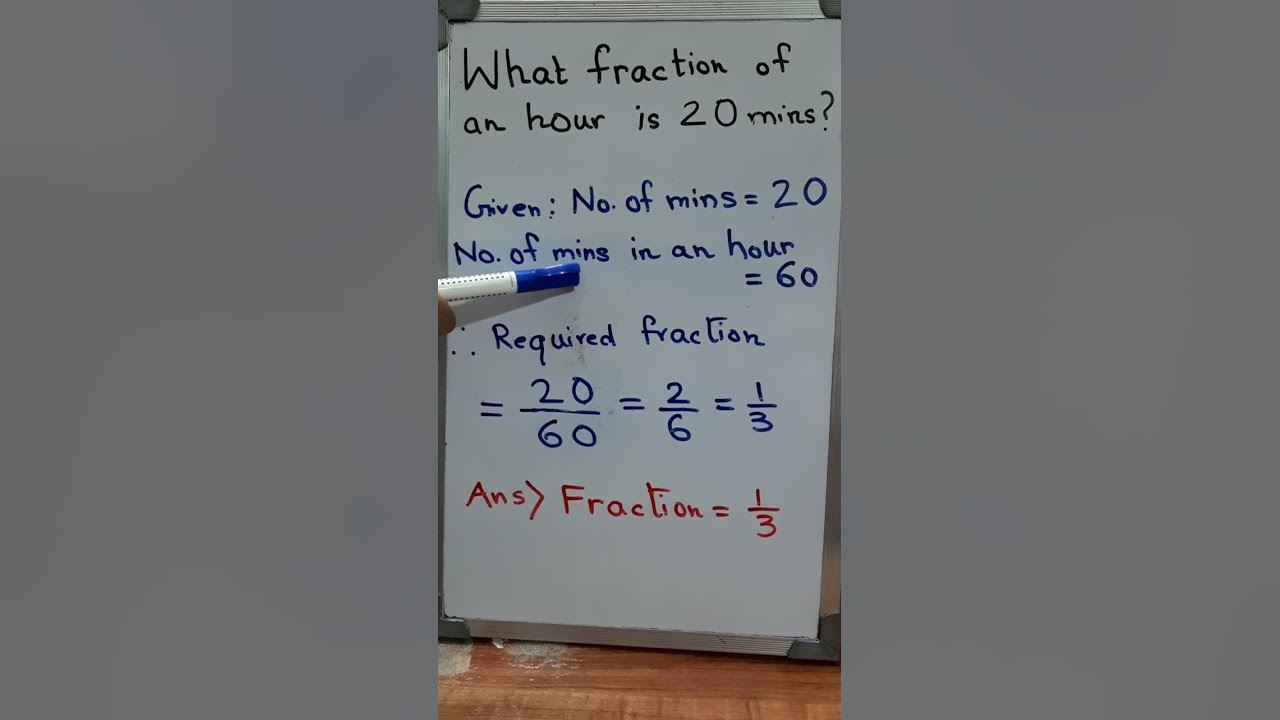 What fraction of
an hour is 20 mins?
Given: No. of mins = 20
No. of mins in an hour
= 60
∴ Required fraction
= 20/60 = 2/6 = 1/3
Ans> Fraction = 1/3